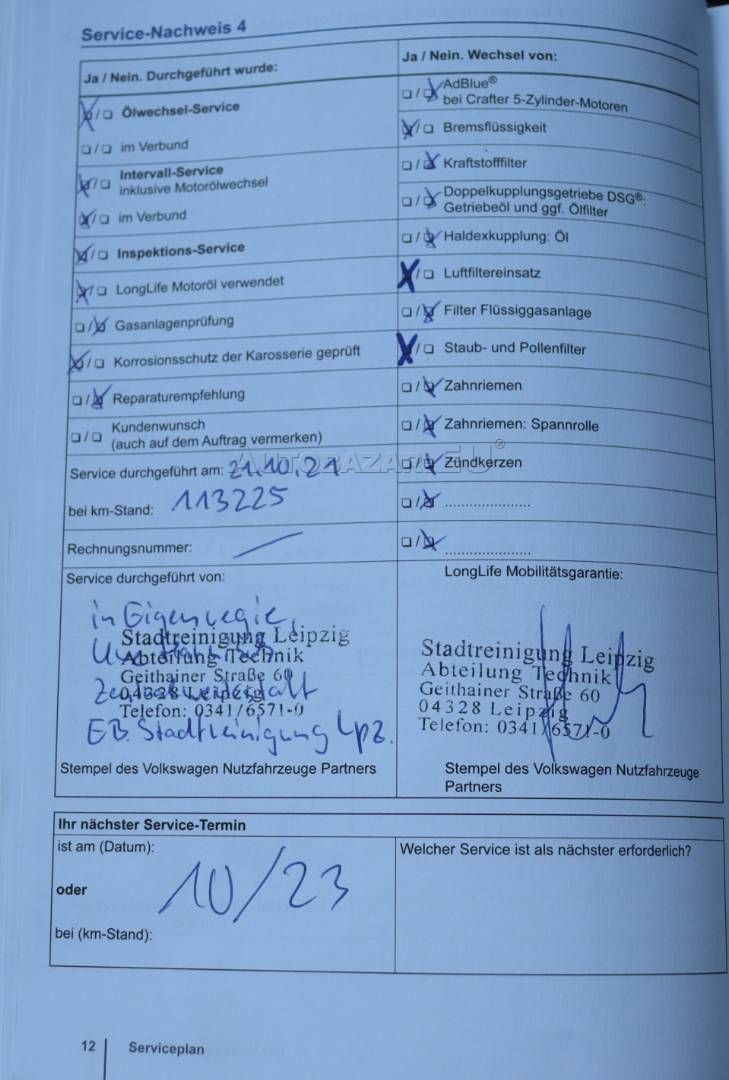 Service-Nachweis 4
Ja / Nein. Durchgeführt wurde:
/ Ölwechsel-Service
/ im Verbund
/ Intervall-Service
inklusive Motorölwechsel
/ im Verbund
/ Inspektions-Service
/ LongLife Motoröl verwendet
/ Gasanlagenprüfung
/ Korrosionsschutz der Karosserie geprüft
/ Reparaturempfehlung
/ Kundenwunsch
(auch auf dem Auftrag vermerken)
Service durchgeführt am: 21.10.21
bei km-Stand: 113225
Rechnungsnummer:
Service durchgeführt von:
in Eigenregie
Stadtreinigung Leipzig
Abteilung Technik
Geithainer Straße 60
04328 Leipzig
Telefon: 0341/6571-0
EB. Stadtreinigung Lpz.
Stempel des Volkswagen Nutzfahrzeuge Partners
Ja / Nein. Wechsel von:
/ AdBlue®
bei Crafter 5-Zylinder-Motoren
/ Bremsflüssigkeit
/ Kraftstofffilter
/ Doppelkupplungsgetriebe DSG®:
Getriebeöl und ggf. Ölfilter
/ Haldexkupplung: Öl
/ Luftfiltereinsatz
/ Filter Flüssiggasanlage
/ Staub- und Pollenfilter
/ Zahnriemen
/ Zahnriemen: Spannrolle
/ Zündkerzen
/ ......................
/ ......................
AUTOBAZAR.EU®
LongLife Mobilitätsgarantie:
Stadtreinigung Leipzig
Abteilung Technik
Geithainer Straße 60
04328 Leipzig
Telefon: 0341/6571-0
Stempel des Volkswagen Nutzfahrzeuge
Partners
Ihr nächster Service-Termin
ist am (Datum):
10/23
oder
bei (km-Stand):
Welcher Service ist als nächster erforderlich?
12 Serviceplan